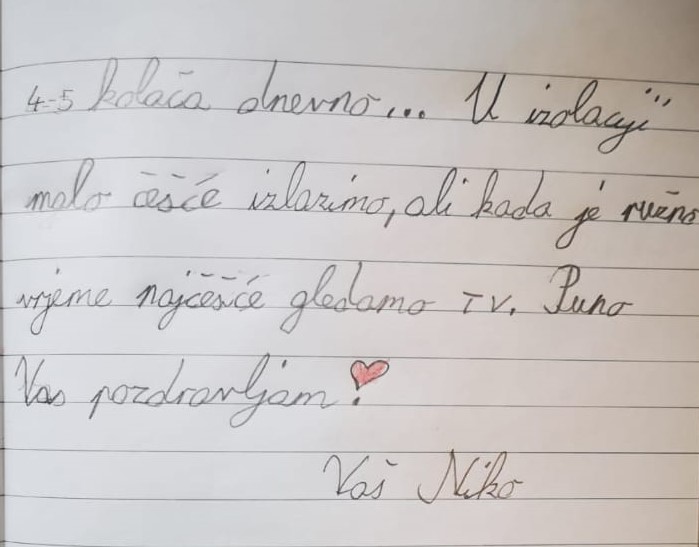 4-5 kolača dnevno... U izolaciji
malo češće izlazimo, ali kada je ružno
vrijeme najčešće gledamo TV. Puno
Vas pozdravljam!
Vaš Niko